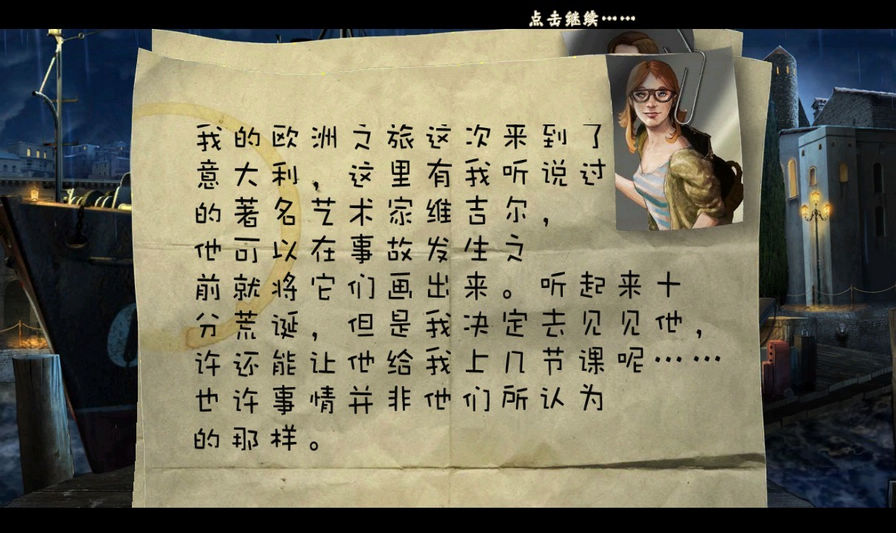 点击继续……
我的欧洲之旅这次来到了
意大利，这里有我听说过
的著名艺术家维吉尔，
他可以在事故发生之
前就将它们画出来。听起来十
分荒诞，但是我决定去见见他，
许还能让他给我上几节课呢……
也许事情并非他们所认为
的那样。